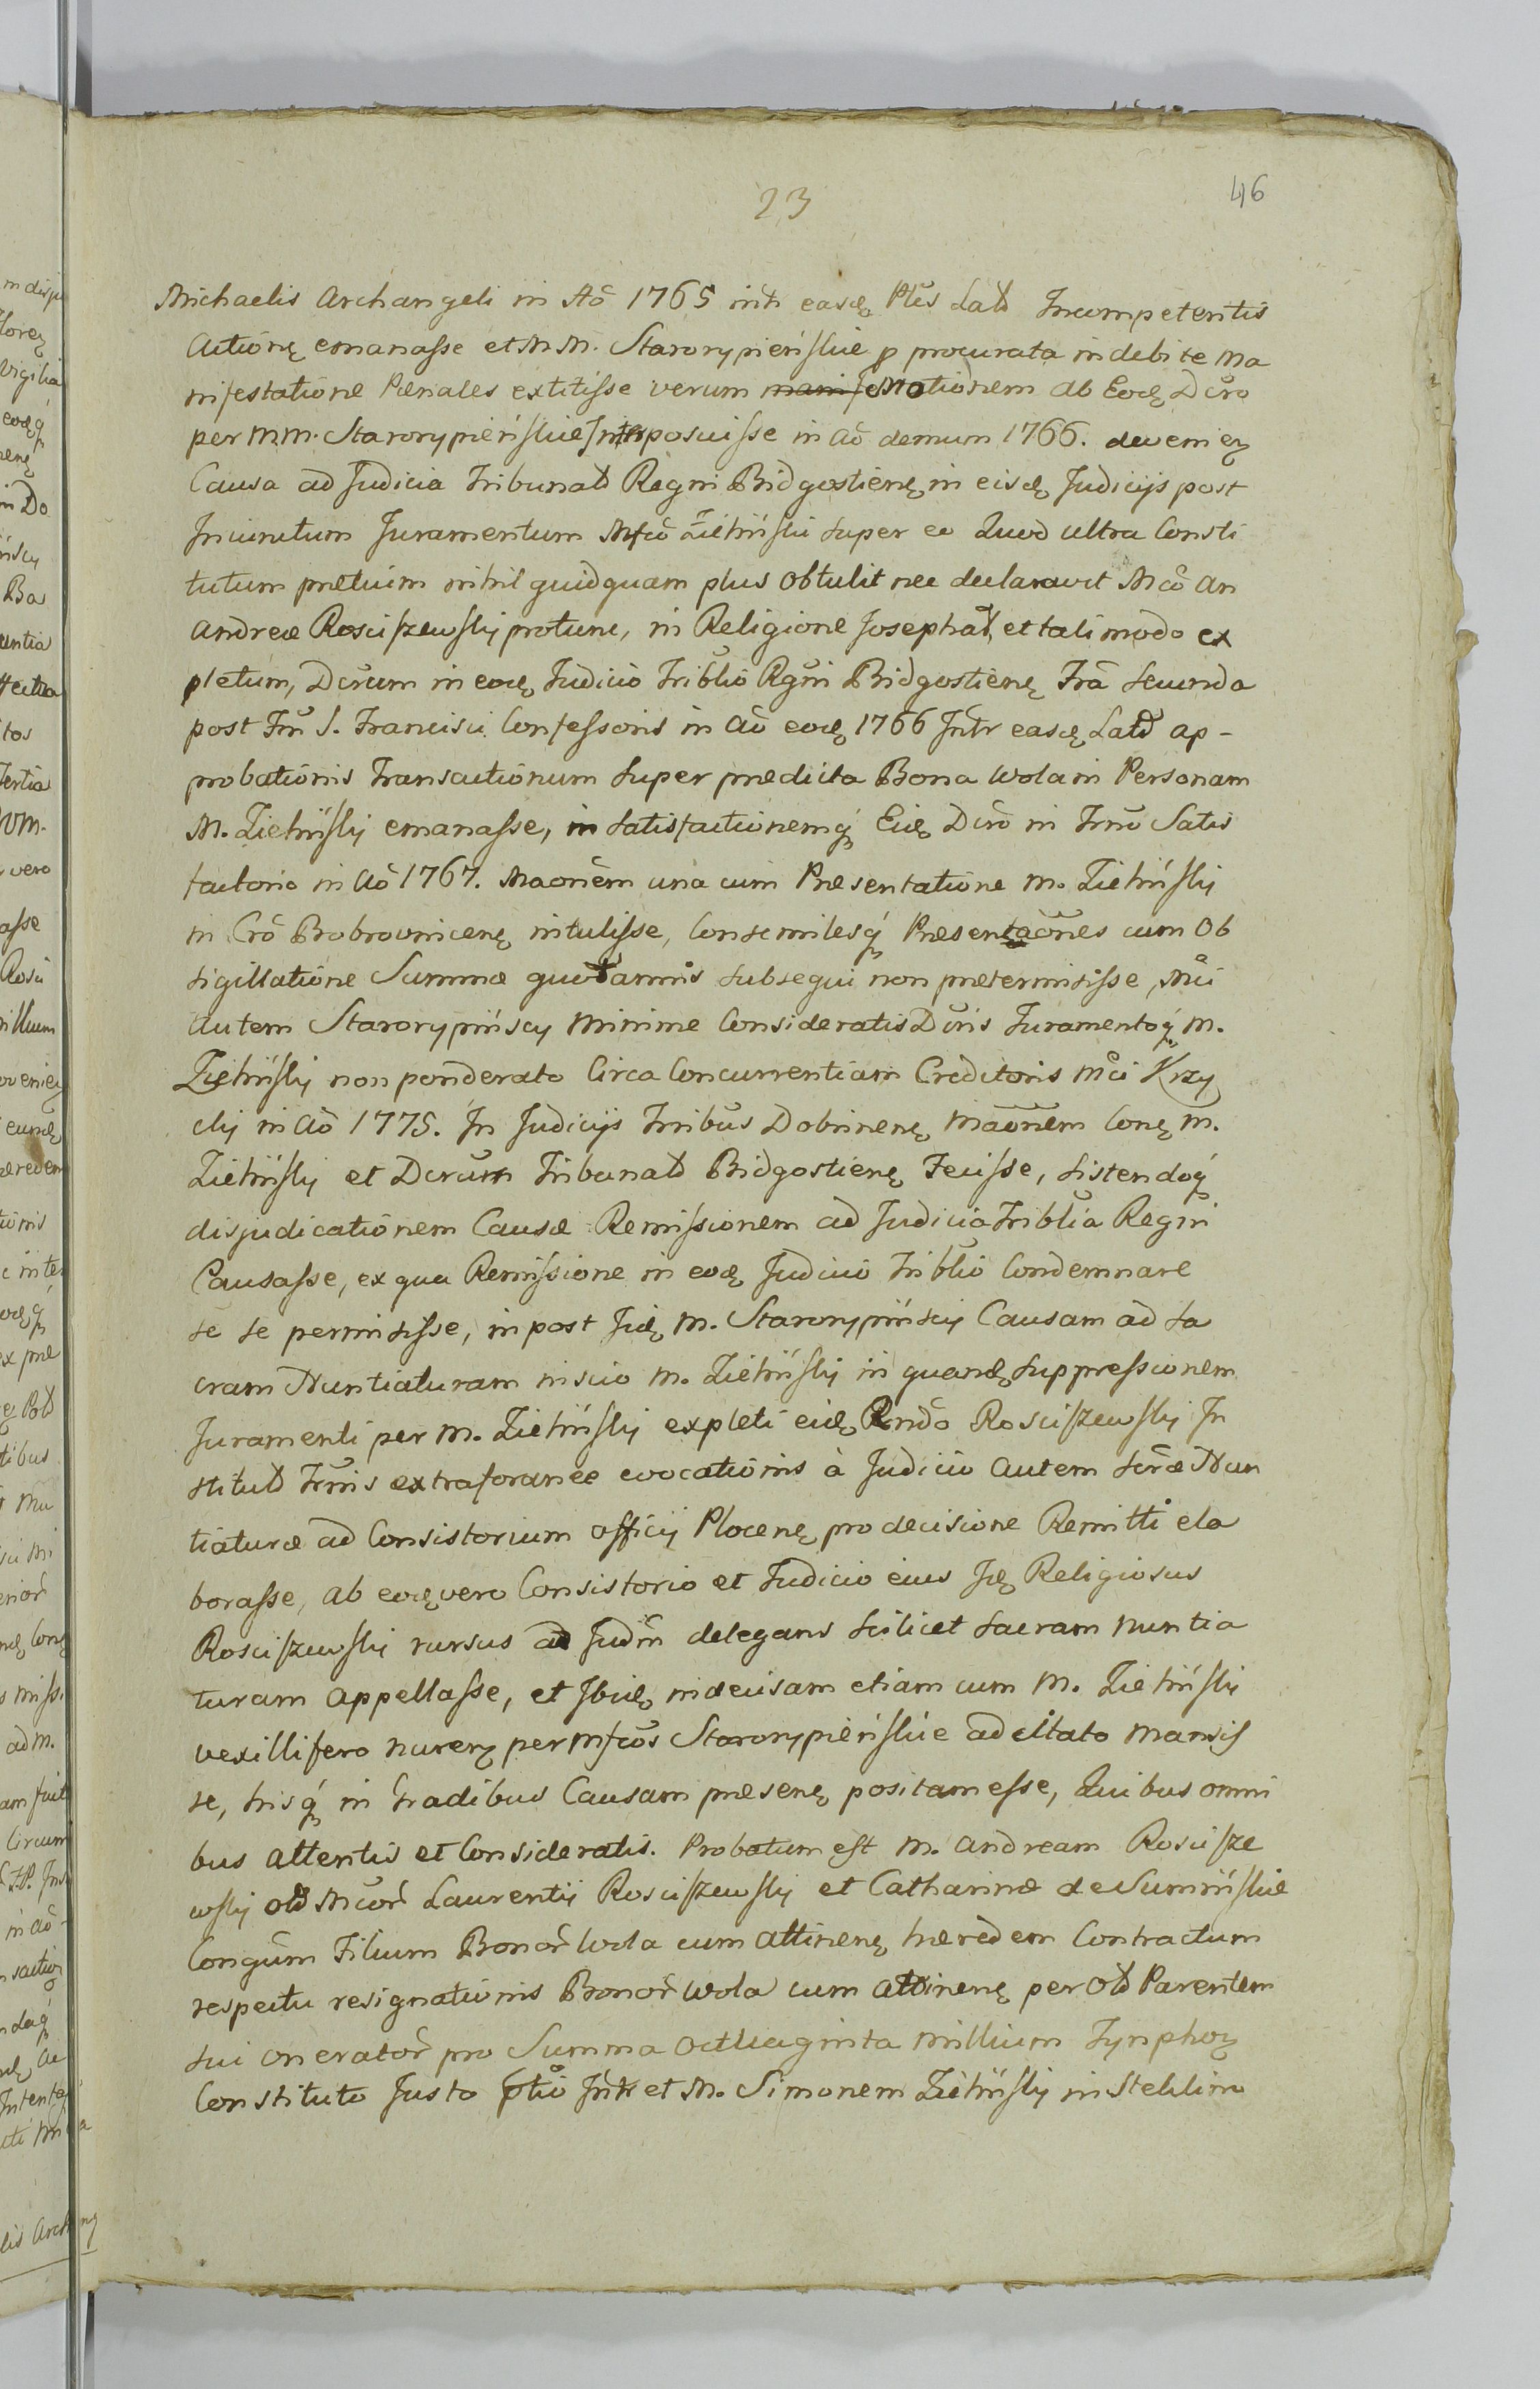 23
46
Michaelis Archangeli in Aō 1765 intr easdę Ptes Latt Incompetentis
Actionę emanasse et M M. Starorypienskie p procurata indebite Ma
nifestatione Pænales extitisse verum manifestationem ab Eodę Dcro
per M M. Starorypienskie Interposuisse in aō demum 1766. devenieꝫ
Causa ad Judicia Tribunatt Regni Bidgostienę in eisdę Judicijs post
Iniunctum Juramentum Mfcō Zieliński super eo Quod ultra Consti
tutum prætium nihil quidquam plus obtulit nec declaravit Mcō An
Andreæ Rosciszewskij protunc, in Religione Josephatt, et tali modo ex
pletum, Dcrum in eodę Judicio Triblio Rgni Bidgostienę Fra Secunda
post Fm S. Francisci Confessoris in aō eodę 1766 Intr easdę Latt ap-
probationis Transactionum super prædicta Bona Wola in Personam
M. Zielińskij emanasse, in satisfactionemq́ Eidę Dcro in Trno Satis
factorio in aō 1767. Maonem una cum Præsentatione M. Zielińskij
in Crō Bobrovnicenę intulisse, Consemilesq́ Præsentāones cum Ob
sigillatione Summæ quotannis subsequi non prætermisisse, Mci
autem Starorypińscy Minime Consideratis Dcris Juramentoq́ M.
Zielińskij non ponderato Circa Concurrentiam Creditoris Mci Krzy
ckij in aō 1775. In Judicijs Tribus Dobrinenę Māonem Conę M.
Zielińskij et Dcrum Tribunatt Bidgostienę Fecisse, sistendoq́
disjudicationem Causæ Remissionem ad Judicia Triblia Regni
Causasse, ex qua Remissione in eodę Judicio Triblio Condemnare
se se permisisse, in post Jidę M. Starorypińscy Causam ad Sa
cram Nuntiaturam inscio M. Zielińskij in quandę suppressionem
Juramenti per M. Zielińskij expleti eidę Rndo Rosciszewskij In
stitutt Trnis extraforaneæ evocationis à Judicio autem Scræ Nun
tiaturæ ad Consistorium officij Plocenę pro decisione Remitti ela
borasse, ab eodę vero Consistorio et Judicio eius Idę Religiosus
Rosciszewskij rursus ad Judm delegans scilicet sacram Nuntia
turam appellasse, et Ibidę indecisam etiam cum M. Zielińskij
vexillifero nurenꝫ per Mfcos Starorypieńskie adcitato Mansis
se, hisq́ in Gradibus Causam præsenę positam esse, Quibus omni
bus attentis et Consideratis. Probatum est M. Andream Roscisze
wskij olt Mcor Laurentij Rosciszewskij et Catharinæ de Sumińskie
Congum Filium Bonor Wola cum attinenę hæredem Contractum
respectu resignationis Bonor Wola cum attinenę per Olt Parentem
sui onerator pro Summa octuaginta Millium Tynphoꝫ
Constituto Justo ptio Intr et M. Simonem Zielińskij in Steklino